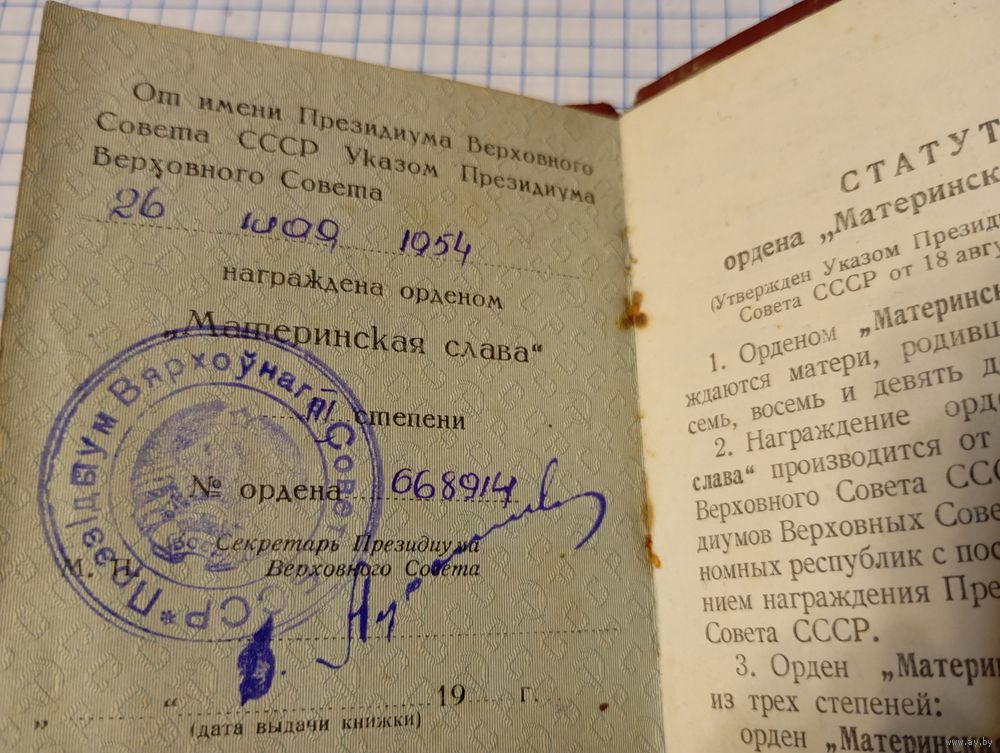 От имени Президиума Верховного
Совета СССР Указом Президиума
Верховного Совета
26 июля 1954
награждена орденом
„Материнская слава“
III степени
№ ордена 668914
Секретарь Президиума
Верховного Совета
М. П.
Прэзідыум Вярхоўнага Совета
ССР
„ “ 19 г.
(дата выдачи книжки)
СТАТУТ
ордена „Материнск
(Утвержден Указом Президи
Совета СССР от 18 авгу
1. Орденом „Материнск
ждаются матери, родивш
семь, восемь и девять д
2. Награждение орде
слава“ производится от
Верховного Совета ССС
диумов Верховных Сове
номных республик с пос
нием награждения Пре
Совета СССР.
3. Орден „Матери
из трех степеней:
орден „Материнс
www.ay.by